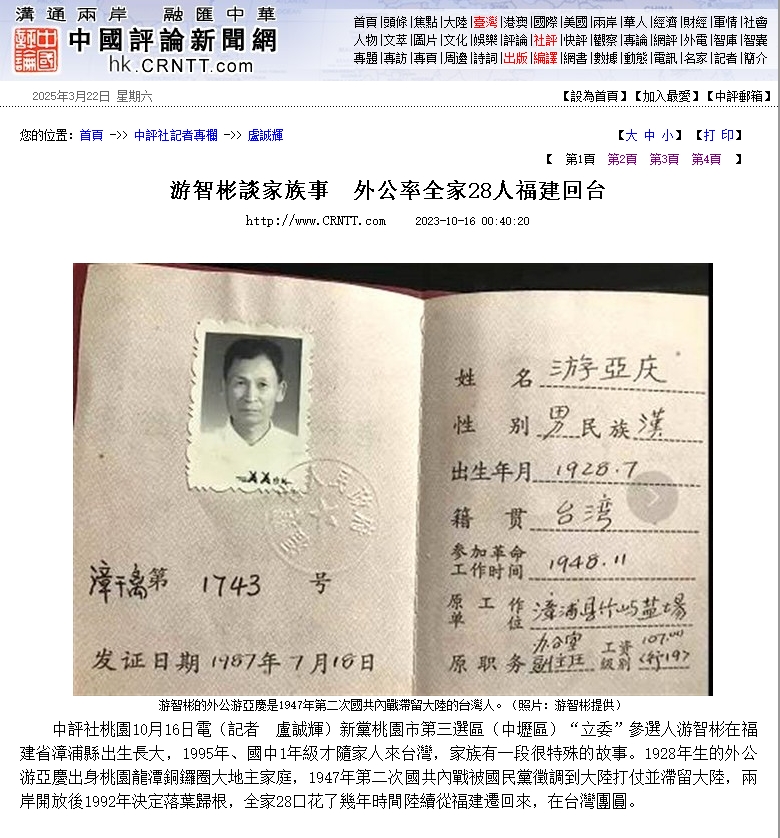 溝通兩岸 融匯中華
中國評論新聞網
hk.CRNTT.com
首頁|頭條|焦點|大陸|臺灣|港澳|國際|美國|兩岸|華人|經濟|財經|軍情|社會
人物|文萃|圖片|文化|娛樂|評論|社評|快評|觀察|專論|網評|外電|智庫|智囊
專題|專訪|專頁|周邊|詩詞|出版|編譯|網書|數據|動態|電訊|名家|記者|簡介
2025年3月22日 星期六
【設為首頁】【加入最愛】【中評郵箱】
您的位置：首頁 ->> 中評社記者專欄 ->> 盧誠輝
【大 中 小】 【打 印】
【 第1頁 第2頁 第3頁 第4頁 】
游智彬談家族事 外公率全家28人福建回台
http://www.CRNTT.com 2023-10-16 00:40:20
漳干离第 1743 号
发证日期 1987年7月18日
姓名 游亞庆
性别 男 民族 漢
出生年月 1928.7
籍贯 台湾
参加革命
工作时间 1948.11
原工作
单位 漳浦县竹屿盐場
原职务 办公室
副主任
工资
级别 107.00
(行19)
游智彬的外公游亞慶是1947年第二次國共內戰滯留大陸的台灣人。（照片：游智彬提供）
中評社桃園10月16日電（記者 盧誠輝）新黨桃園市第三選區（中壢區）“立委”參選人游智彬在福
建省漳浦縣出生長大，1995年、國中1年級才隨家人來台灣，家族有一段很特殊的故事。1928年生的外公
游亞慶出身桃園龍潭銅鑼圈大地主家庭，1947年第二次國共內戰被國民黨徵調到大陸打仗並滯留大陸，兩
岸開放後1992年決定落葉歸根，全家28口花了幾年時間陸續從福建遷回來，在台灣團圓。